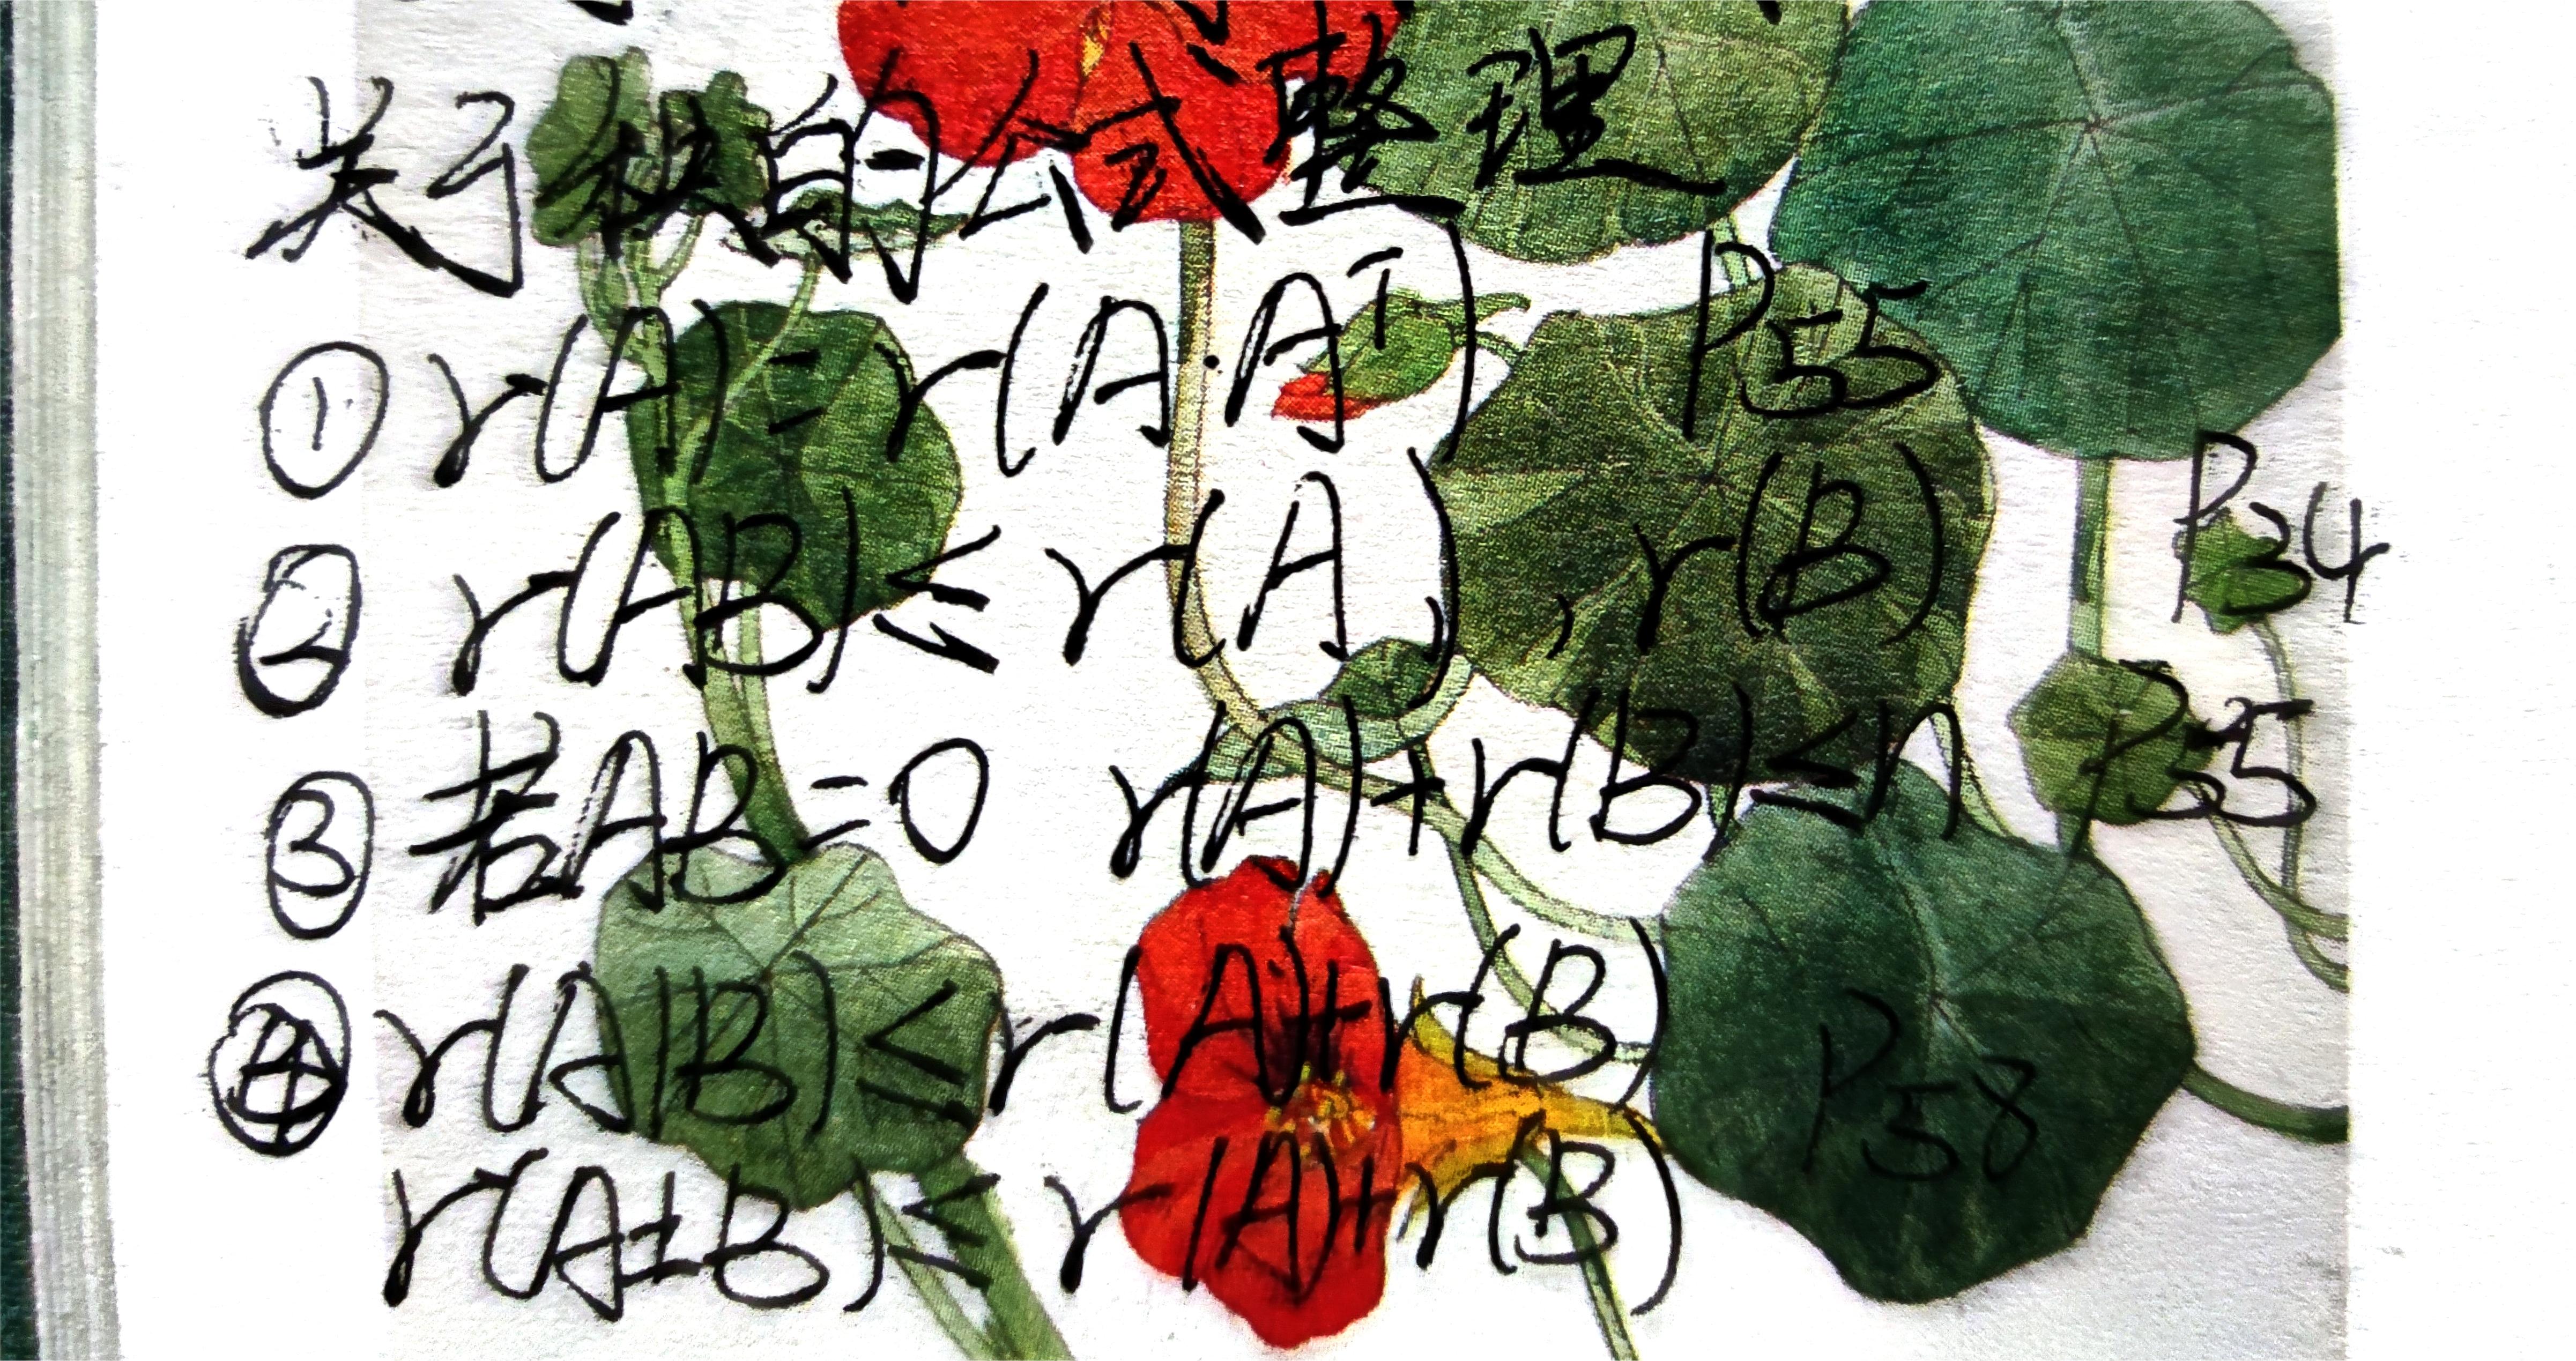 关于秩的公式整理
① r(A)=r(A·Aᵀ) P55
② r(AB)≤r(A),r(B) P34
③ 若AB=0 r(A)+r(B)≤n P35
④ r(A|B)≤r(A)+r(B)
P58
r(A±B)≤r(A)+r(B)